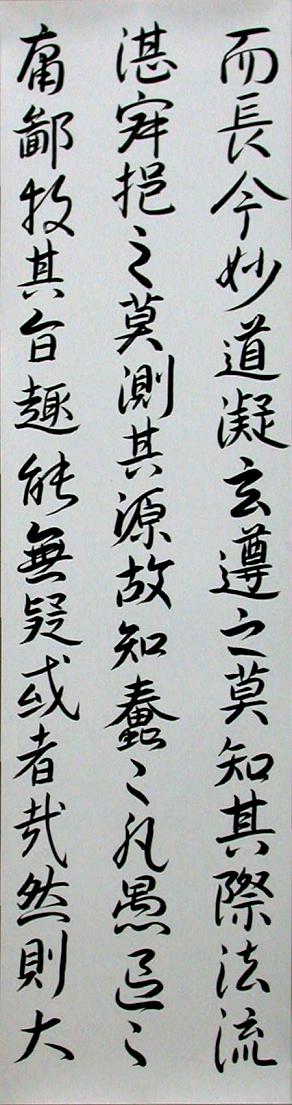 而長今妙道凝玄遵之莫知其際法流
湛寂挹之莫測其源故知蠢〻凡愚區〻
庸鄙投其旨趣能無疑或者哉然則大